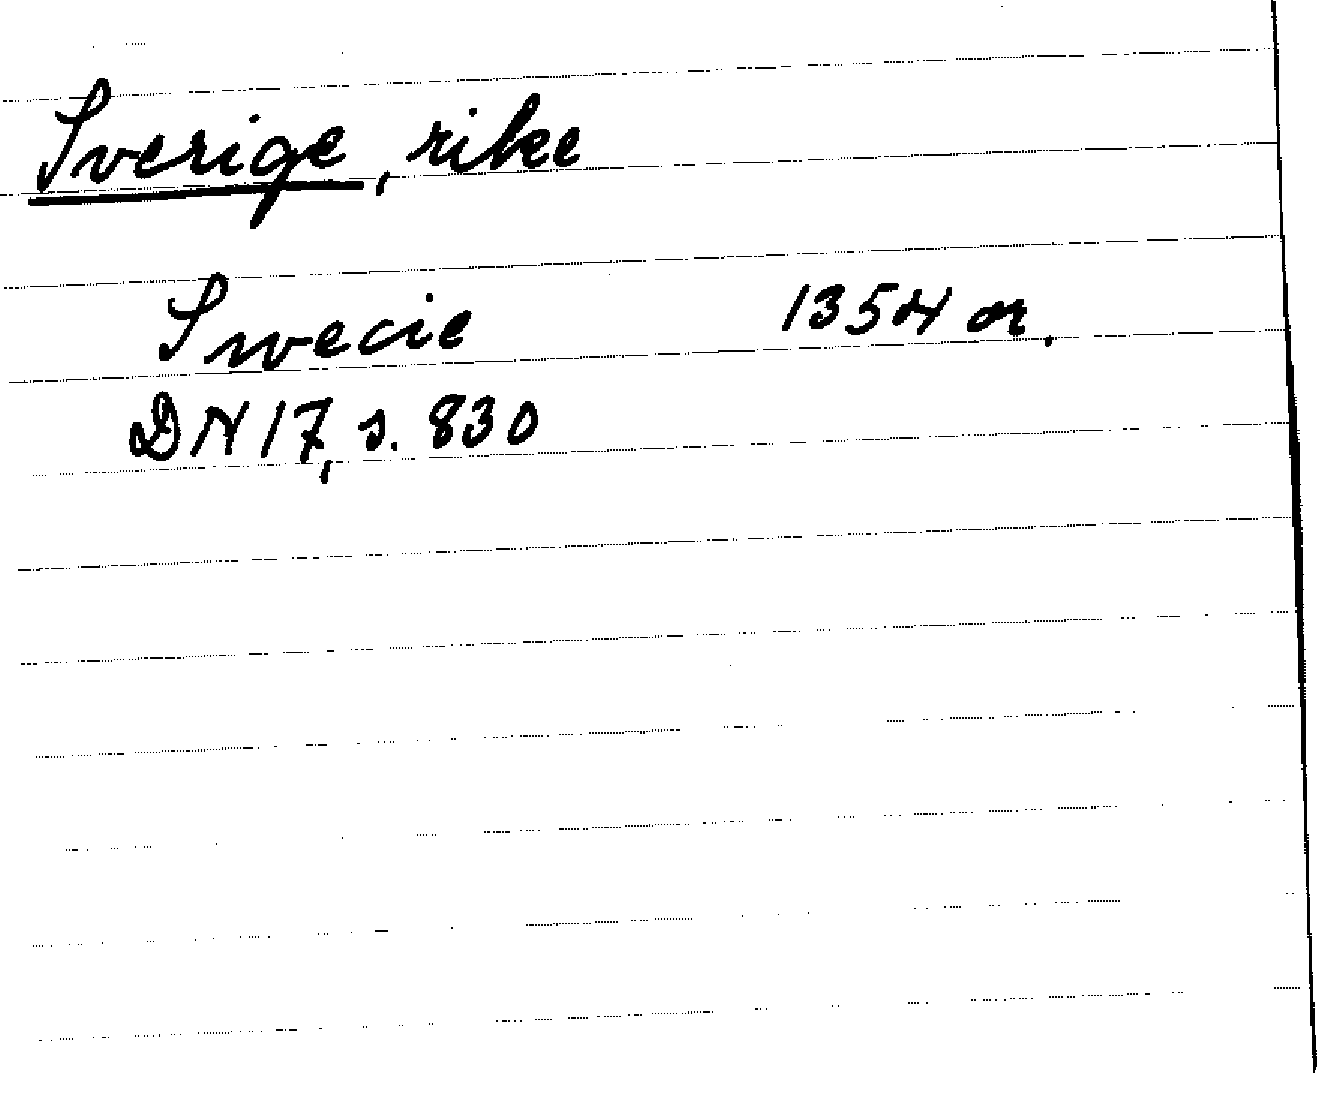 Sverige, rike
Swecie 1354 or.
DN 17, s. 830